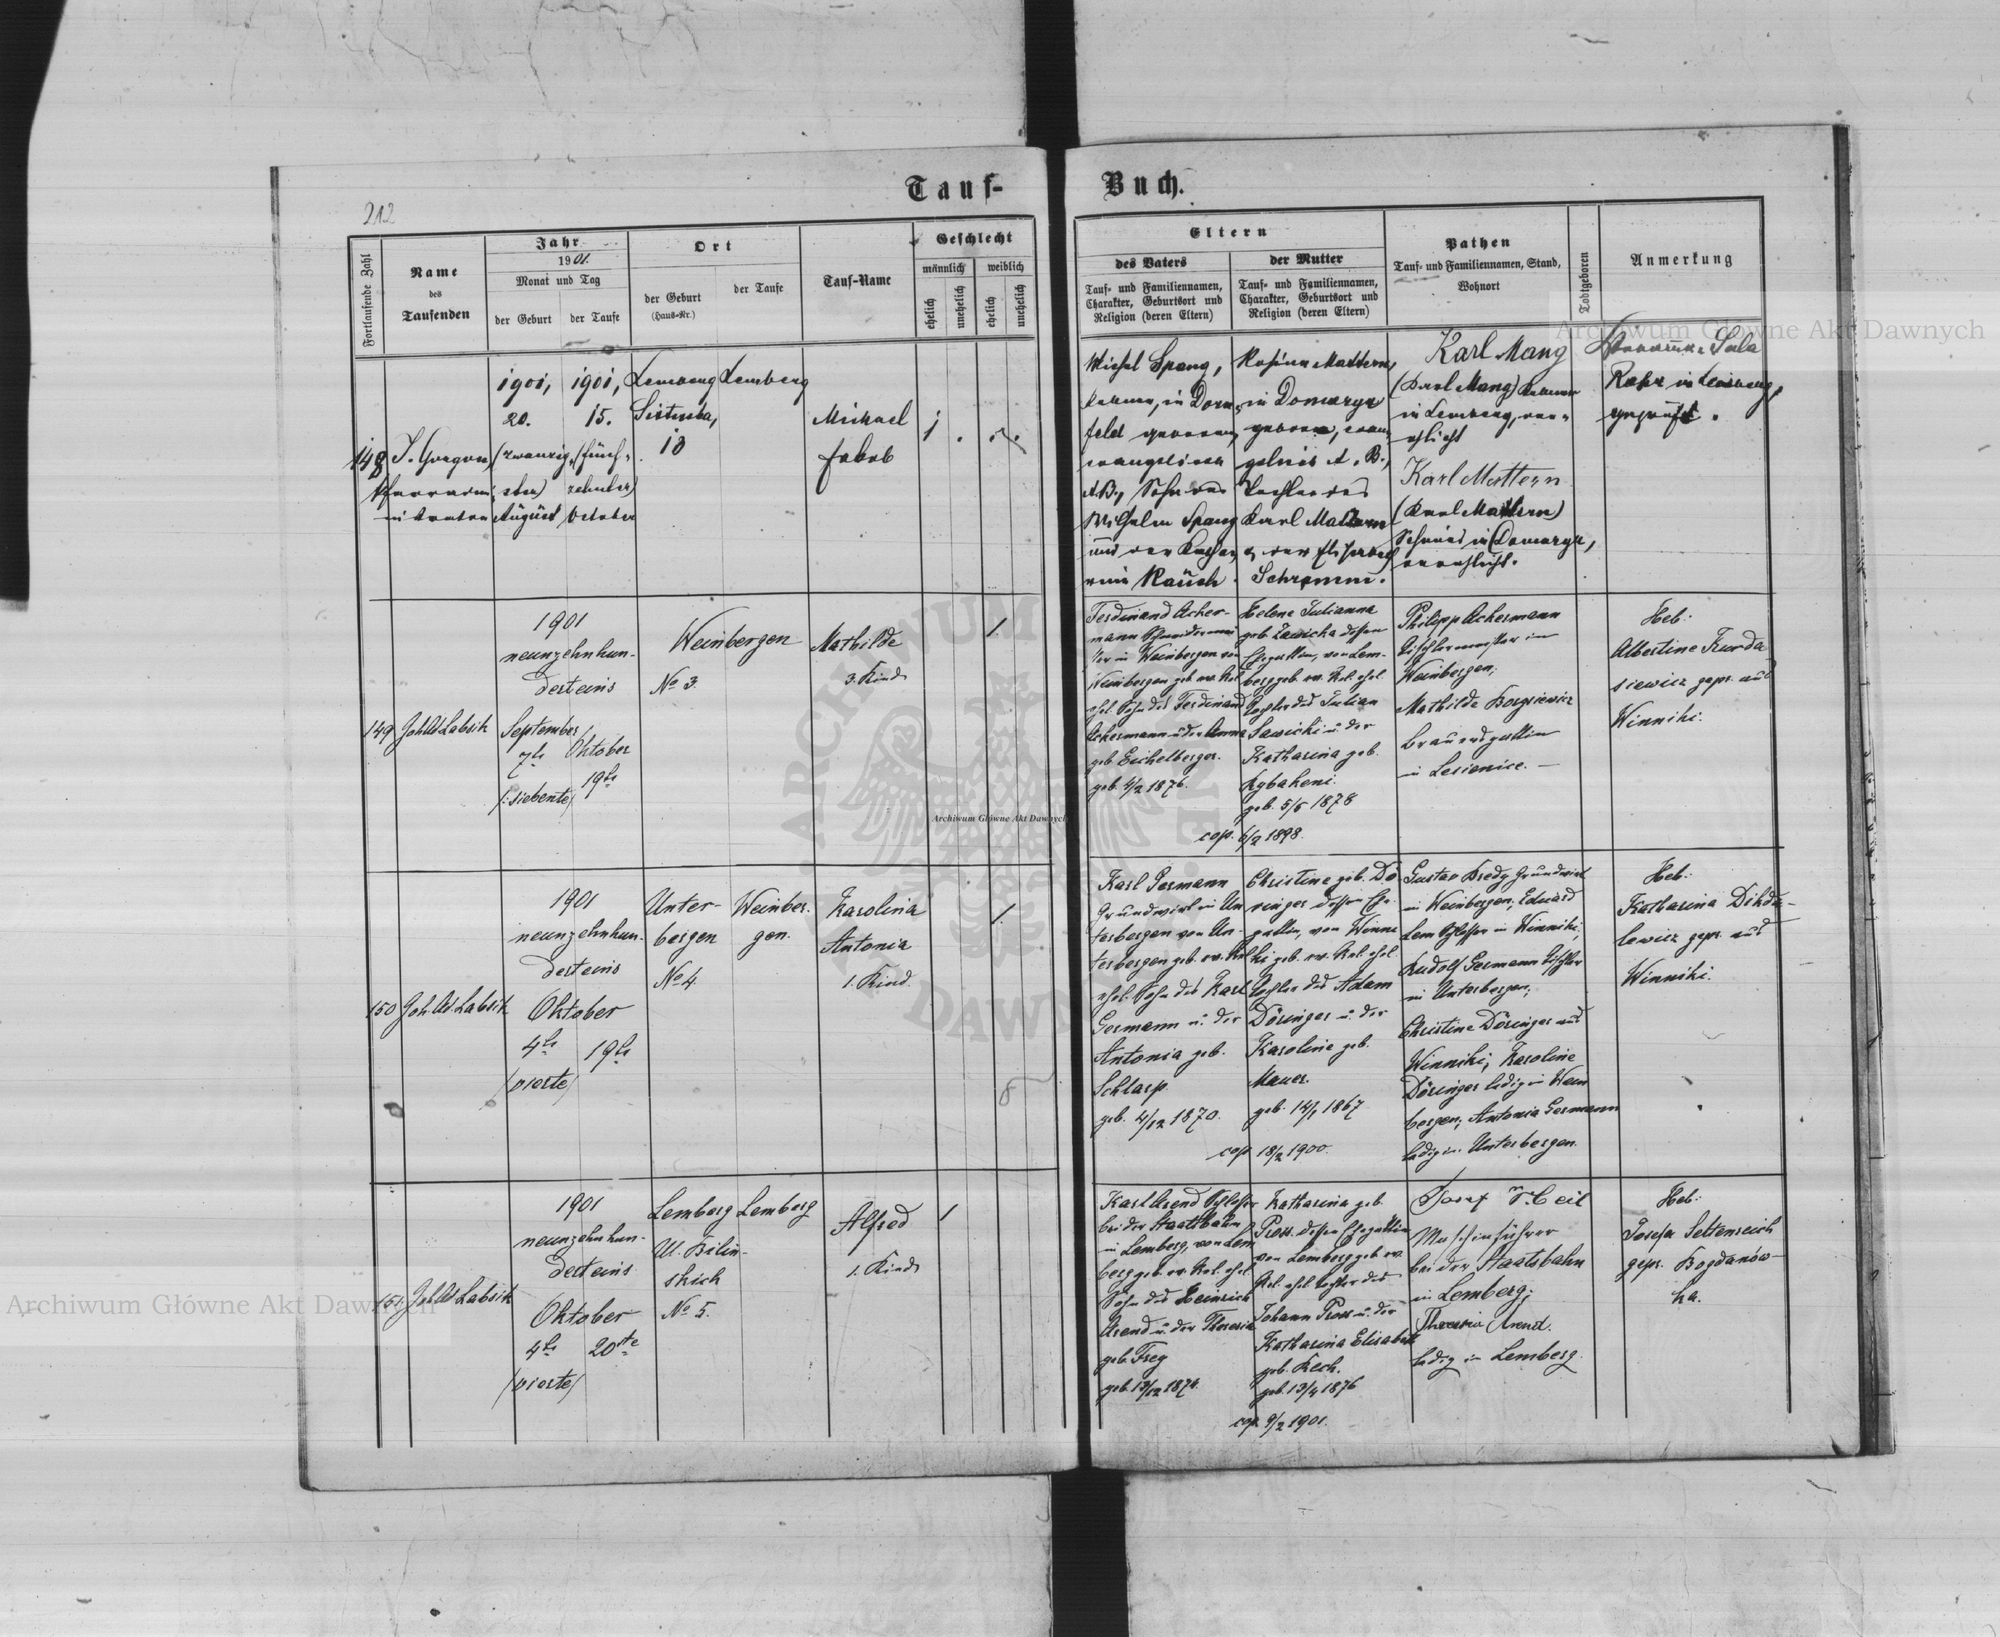 212
Tauf-
Buch.
Fortlaufende Zahl
Name
des
Taufenden
Jahr
1901.
Monat und Tag
der Geburt
der Taufe
Ort
der Geburt
(Haus-Nr.)
der Taufe
Tauf-Name
Geschlecht
männlich
weiblich
ehelich
unehelich
ehelich
unehelich
Eltern
des Vaters
Tauf- und Familiennamen,
Charakter, Geburtsort und
Religion (deren Eltern)
der Mutter
Tauf- und Familiennamen,
Charakter, Geburtsort und
Religion (deren Eltern)
Pathen
Tauf- und Familiennamen, Stand,
Wohnort
Todtgeboren
Anmerkung
148
1901,
20.
(zwanzig-
ster)
August
1901,
15.
(fünf-
zehnter)
October
Lemberg
18
Lemberg
Michael
Jakob
Michel Spang,
in Dorn-
feld geboren,
evangelisch
A.B., Sohn des
Wilhelm Spang
und der Katha-
rina Rauch.
Rosina Mattern,
in Domazyr
geboren, evan-
gelisch A. B.,
Tochter des
Karl Mattern
u. der Elisabeth
Schramm.
Karl Mang
(Karl Mang)
in Lemberg, ver-
ehlicht
Karl Mattern
(Karl Mattern)
Schmied in Domazyr,
verehlicht.
in Lemberg,
geprüft.
149
Joh. Ad. Labsik
1901
neunzehnhun-
derteins
September
7te
/:siebente/
Oktober
19te
Weinbergen
No 3.
Mathilde
3. Kind
1.
Ferdinand Acker-
mann Schneidermei-
ster in Weinbergen von
Weinbergen geb. ev. Rel.
ehel. Sohn des Ferdinand
Ackermann u. der Anna
geb. Eichelberger.
geb. 4/2 1876.
Helene Julianna
geb. Sawicka dessen
Ehegattin, von Lem-
berg geb. ev. Rel. ehel.
Tochter des Julian
Sawicki u. der
Katharina geb.
geb. 5/5 1878
cop. 6/2 1898.
Philipp Ackermann
Tischlermeister in
Weinbergen;
Mathilde
Brauersgattin
in Lesienice. —
Heb.
Albertine Kurda
siewicz gepr. aus
Winniki.
150
Joh. Ad. Labsik
1901
neunzehnhun-
derteins
Oktober
4te
/vierte/
19te
Unter-
bergen
No 4.
Weinber-
gen.
Karolina
Antonia
1. Kind.
1.
Karl Germann
Grundwirt in Un-
terbergen von Un-
terbergen geb. ev. Rel.
ehel. Sohn des Karl
Germann u. der
Antonia geb.
Schlarp
geb. 4/12 1870.
Christine geb. Dö-
ringer dessen Ehe-
gattin, von Winni-
ki geb. ev. Rel. ehel.
Tochter des Adam
Döringer u. der
Karoline geb.
Mauer.
geb. 14/1 1867
cop. 18/2 1900.
Gustav Bredy Grundwirt
in Weinbergen; Eduard
Lem Schlosser in Winniki;
Rudolf Germann Tischler
in Unterbergen;
Christine Döringer aus
Winniki; Karoline
Döringer ledig in Wein
bergen; Antonia Germann
ledig in Unterbergen.
Heb.
Katharina
lewicz gepr. aus
Winniki.
151
Joh. Ad. Labsik
1901
neunzehnhun-
derteins
Oktober
4te
/vierte/
20ste
Lemberg
Ul. Bilin-
skich
No 5.
Lemberg
Alfred
1. Kind
1
Karl Arend Schlosser
bei der Staatsbahn
in Lemberg, von Lem
berg geb. ev. Rel. ehel.
Sohn des Heinrich
Arend u. der Theresia
geb. Frey
geb. 13/12 1874.
Katharina geb.
Pross. dessen Ehegattin
von Lemberg geb. ev.
Rel. ehel. Tochter des
Johann Pross u. der
Katharina Elisabeth
geb. Kech.
geb. 13/4 1876
cop. 9/2 1901.
Josef
Maschinführer
bei der Staatsbahn
in Lemberg;
Theresia Arend.
ledig in Lemberg.
Heb.
Josefa Settenreich
gepr. Bogdanów-
ka.
Archiwum Główne Akt Dawnych
Archiwum Główne Akt Dawnych
Archiwum Główne Akt Dawnych